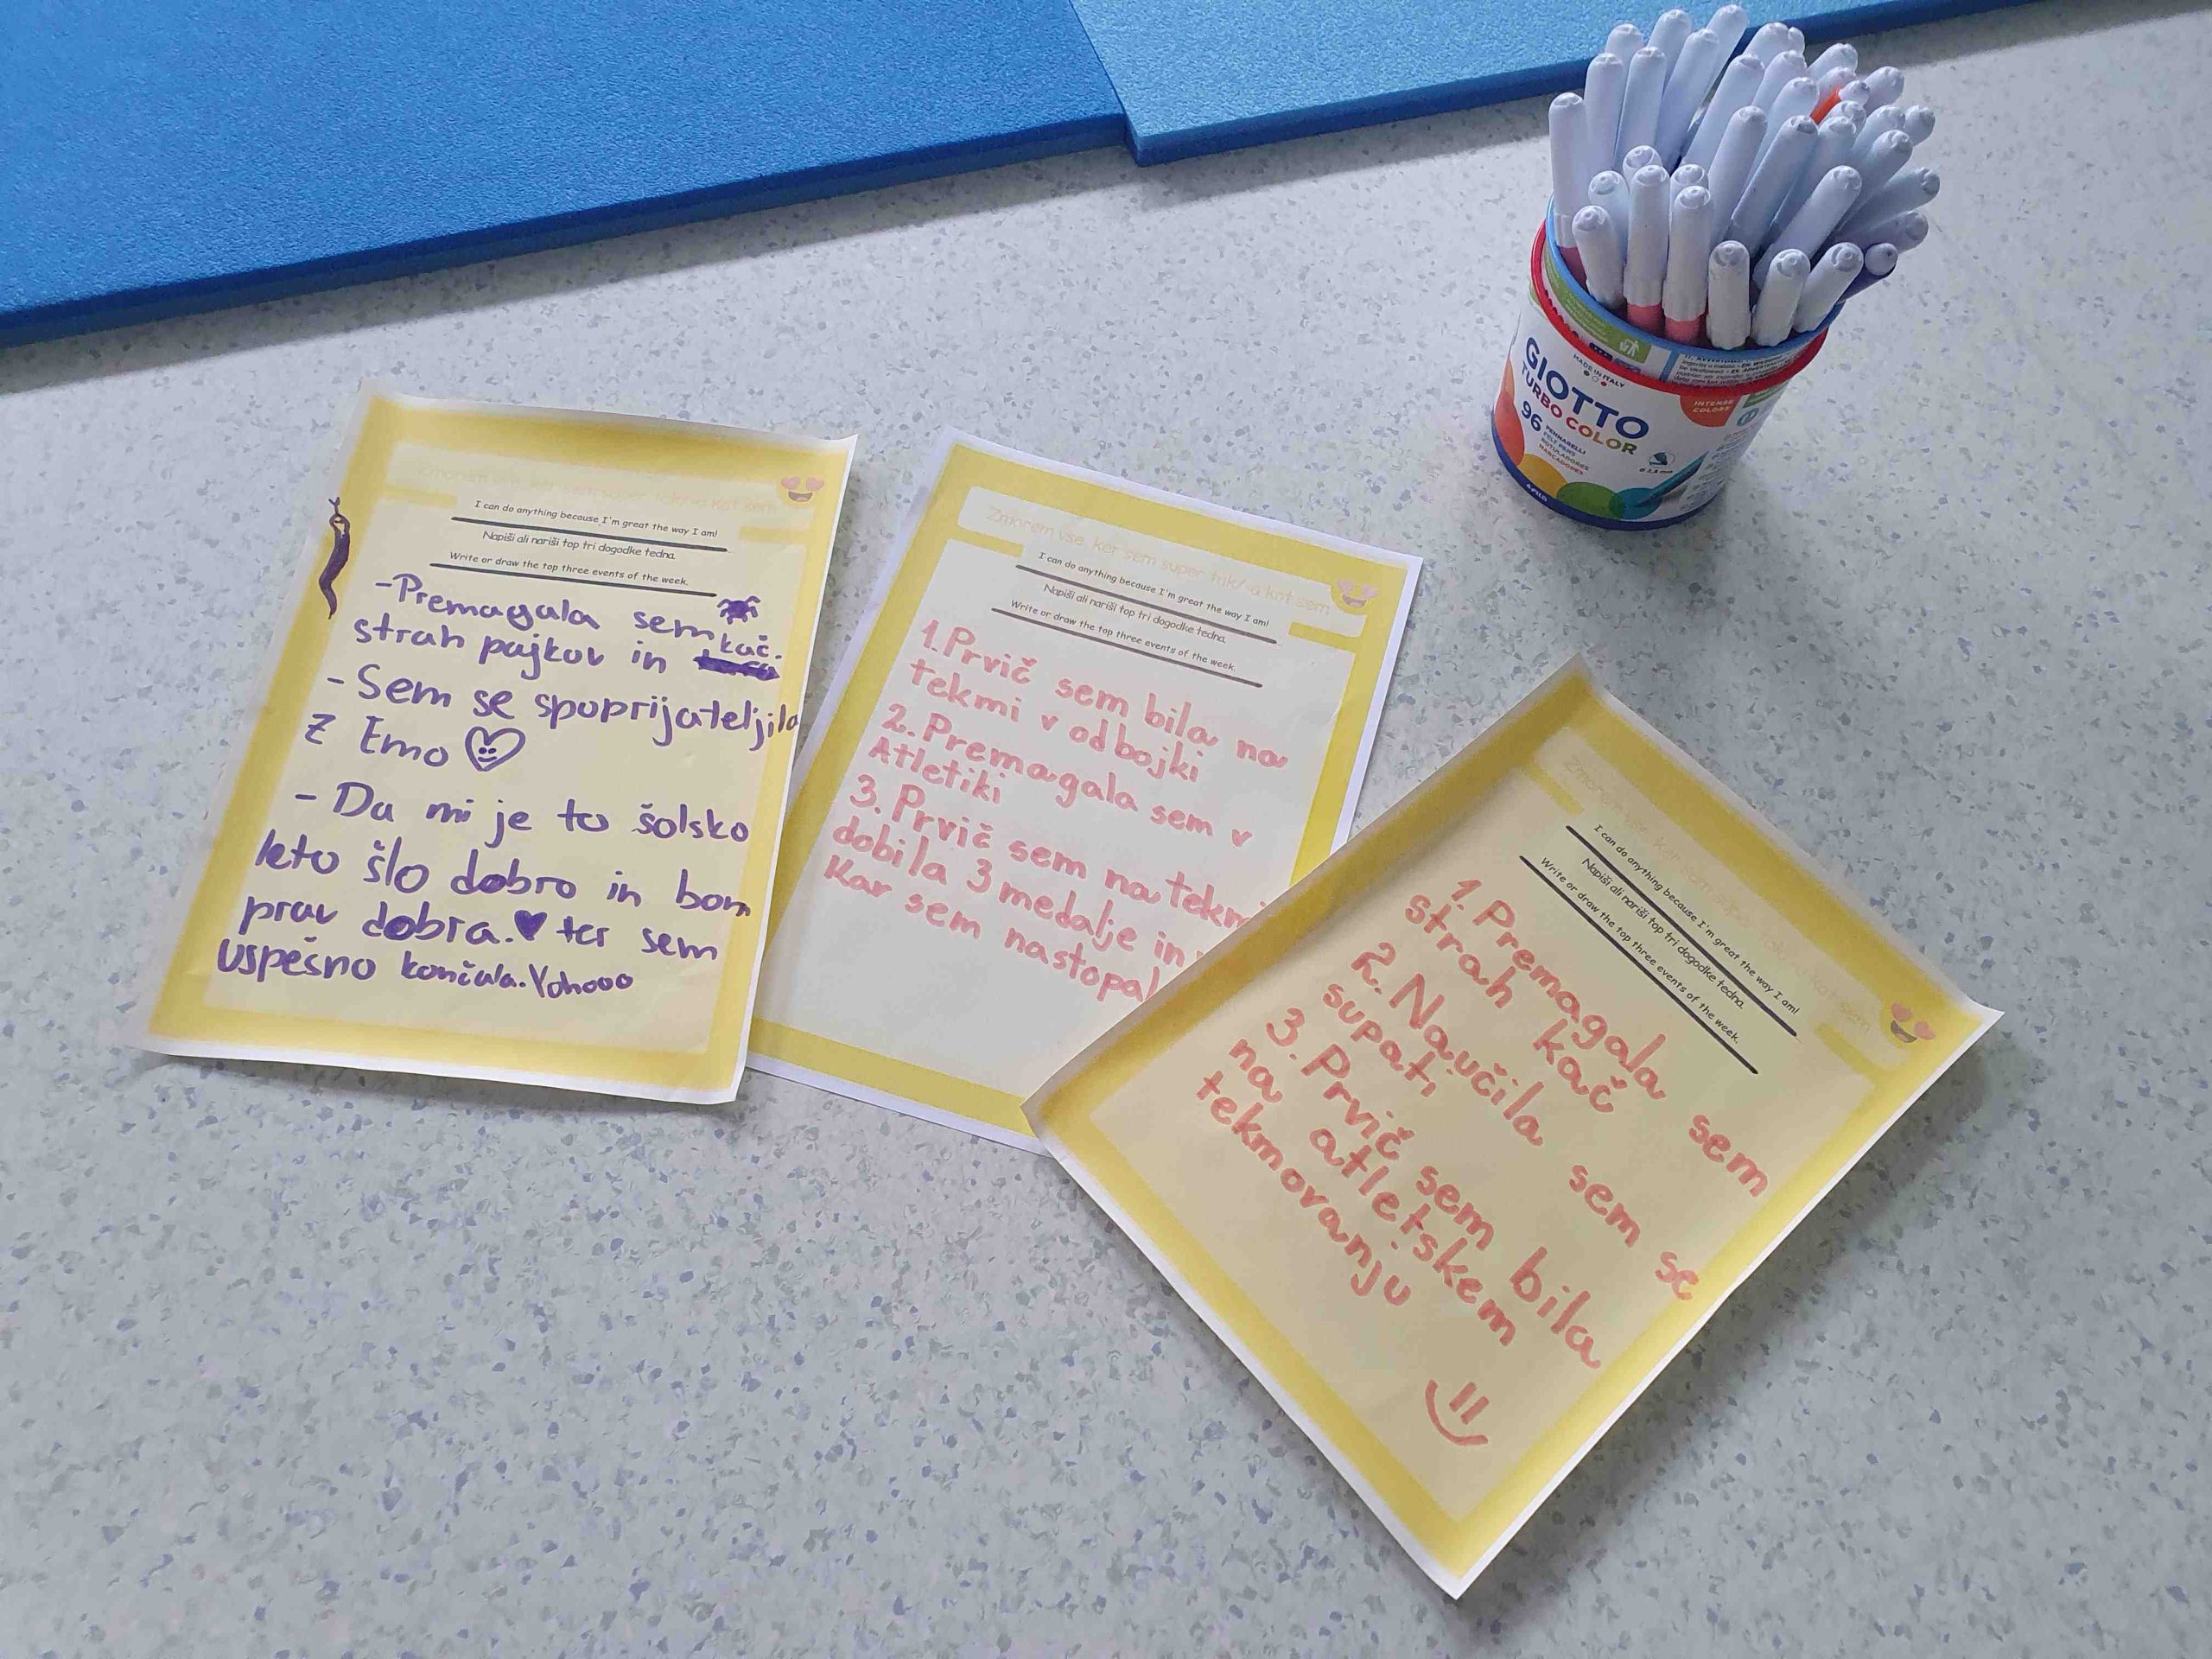 Zmorem vse, ker sem super tak/-a kot sem
I can do anything because I'm great the way I am!
Napiši ali nariši top tri dogodke tedna.
Write or draw the top three events of the week.
-Premagala sem
strah pajkov in kač.
- Sem se spoprijateljila
z Emo
- Da mi je to šolsko
leto šlo dobro in bom
prav dobra. ter sem
uspešno končala. Yohooo
Zmorem vse, ker sem super tak/-a kot sem
I can do anything because I'm great the way I am!
Napiši ali nariši top tri dogodke tedna.
Write or draw the top three events of the week.
1. Prvič sem bila na
tekmi v odbojki
2. Premagala sem v
Atletiki
3. Prvič sem na tekmi
dobila 3 medalje in
kar sem nastopal
Zmorem vse, ker sem super tak/-a kot sem
I can do anything because I'm great the way I am!
Napiši ali nariši top tri dogodke tedna.
Write or draw the top three events of the week.
1. Premagala sem
strah kač
2. Naučila sem se
supati
3. Prvič sem bila
na atletskem
tekmovanju
MADE IN ITALY
GIOTTO
TURBO COLOR
96
PENNARELLI
FELT PENS
ROTULADORES
MARCADORES
INTENSE
COLORS